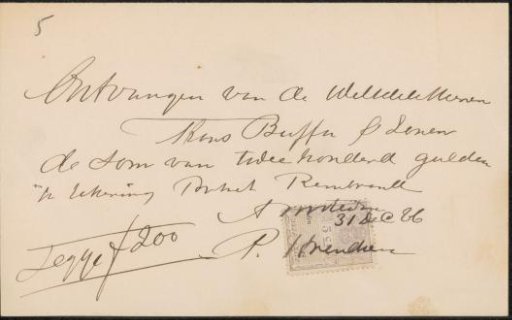 5
Ontvangen van de WelEdele Heeren
Frans Buffa & Zonen
de som van twee honderd gulden
in rekening Portret Rembrandt
Amsterdam
31 Dec 86
Zegge f 200
P.